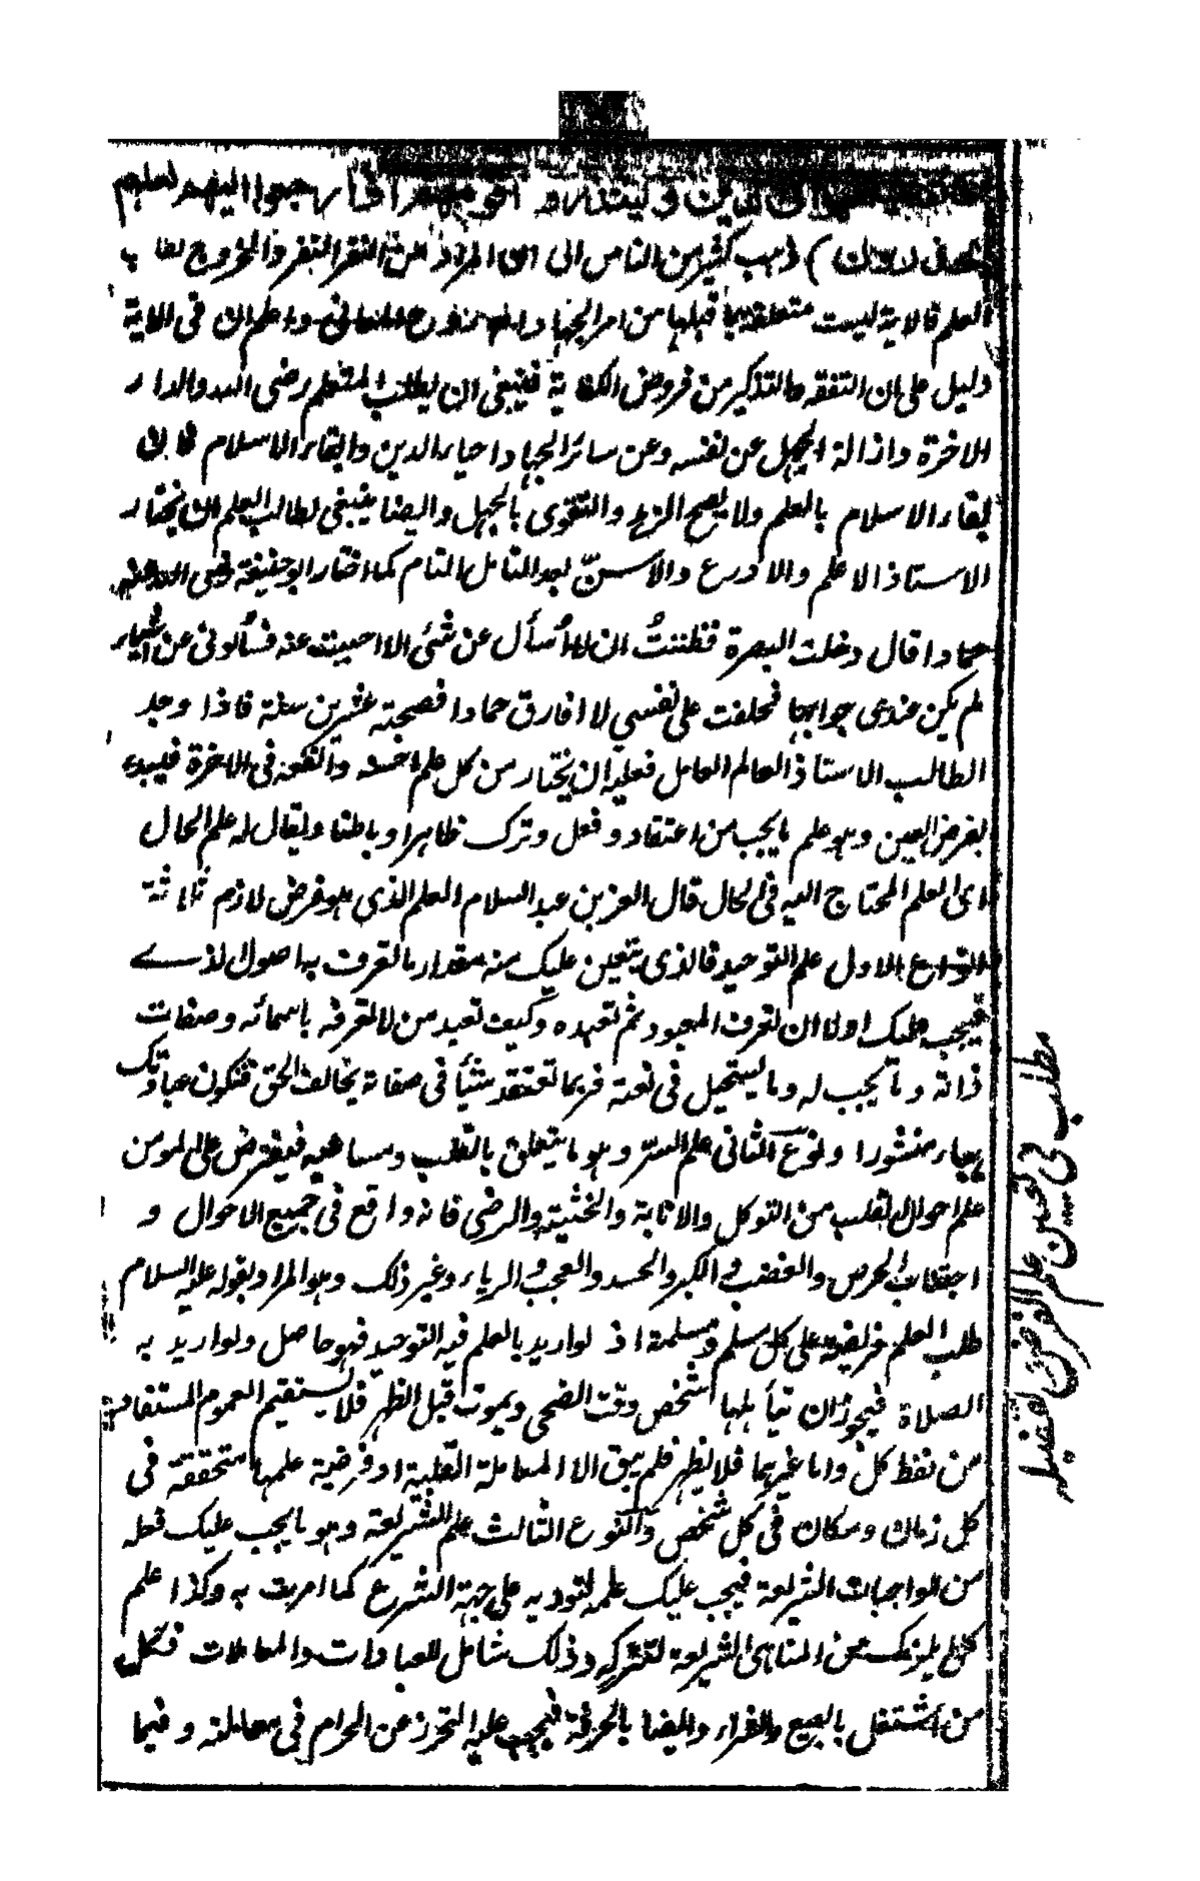 في الدين ولينذروا قومهم اذا رجعوا اليهم لعلهم
يحذرون) ذهب كثير من الناس الى ان المراد من النفر التفر والخروج لطلب
العلم فالاية ليست متعلقة بما قبلها من امر الجهاد واعلم ان فى الاية
دليل على ان التفقه والتذكير من فروض الكفاية فينبغى ان يطلب المتعلم رضى الله والدار
الاخرة وازالة الجهل عن نفسه وعن سائر الجهال واحياء الدين وابقاء الاسلام فان
بقاء الاسلام بالعلم ولا يصح الزهد والتقوى بالجهل وايضا ينبغى لطالب العلم ان يختار
الاستاذ الاعلم والاورع والاسنّ بعد التامل التام كما اختار ابو حنيفة رضى الله عنه
حمادا قال دخلت البصرة فظننتُ ان لا اُسأل عن شئ الا اجبت عنه فسألونى عن اشياء
لم يكن عندى جوابها فحلفت على نفسي لا افارق حمادا فصحبته عشرين سنة فاذا وجد
الطالب الاستاذ العالم العامل فعليه ان يختار من كل علم احسنه وانفعه فى الاخرة فيبدء
بفرض العين وهو علم ما يجب من اعتقاد و فعل و ترك ظاهرا و باطنا ويقال له علم الحال
اى العلم المحتاج اليه فى الحال قال العز بن عبد السلام العلم الذى هو فرض لازم ثلاثة
انواع الاول علم التوحيد فالذى يتعين عليك منه مقدار ما تعرف به اصول الذے
فيجب عليك اولا ان تعرف المعبود ثم تعبده وكيف تعبد من لا تعرفه باسمائه وصفات
ذاته وما يجب له وما يستحيل فى نعته فربما تعتقد شيأ فى صفاته يخالف الحق فتكون عبادتك
هباء منثورا والنوع الثانى علم السرّ وهو ما يتعلق بالقلب ومساعيه فيفترض على المؤمن
علم احوال القلب من التوكل والانابة والخشية والرضى فانه واقع فى جميع الاحوال و
اجتناب الحرص والغضب والكبر والحسد والعجب والرياء وغير ذلك وهو المراد بقوله عليه السلام
طلب العلم فريضة على كل مسلم ومسلمة اذ لو اريد بالعلم فيه التوحيد فهو حاصل ولو اريد به
الصلاة فيجوز ان يتأهلها شخص وقت الضحى ويموت قبل الظهر فلا يستقيم العموم المستفاد
من لفظ كل واما غيرهما فلا يظهر فلم يبق الا المعاملة القلبية اذ فرضية علمها متحققة فى
كل زمان ومكان فى كل شخص والنوع الثالث علم الشريعة وهو ما يجب عليك فعله
من الواجبات الشريعة فيجب عليك علمه لتوديه على جهة الشرع كما امرت به وكذا علم
كل ما يلزمك من المناهى الشريعة لتتركه وذلك شامل للعبادات والمعاملات فكل
من اشتغل بالبيع والشراء وايضا بالحرفة فيجب عليه التحرز عن الحرام فى معاملته وفيما
مطلب فى تعيين علم الفرض